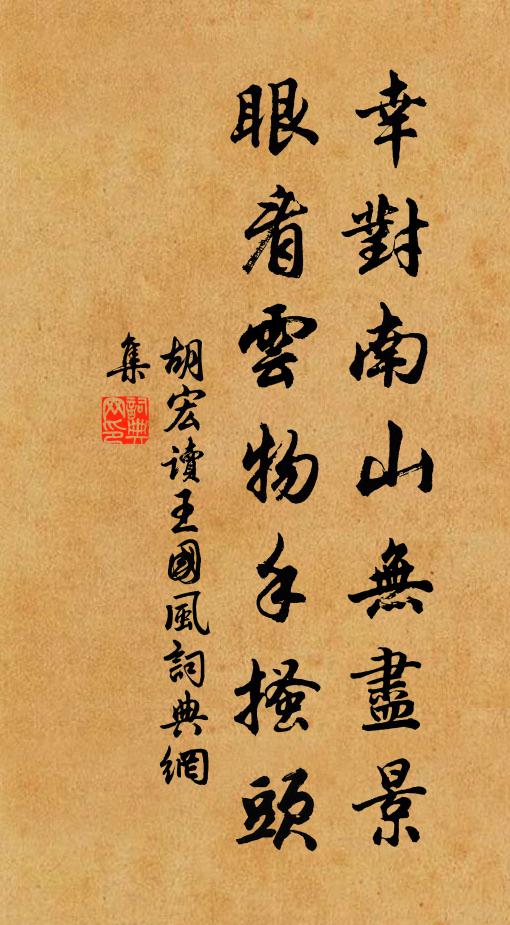 幸對南山無盡景
眼看雲物手搔頭
胡宏讀王國風詞典網
集
詞典
网印